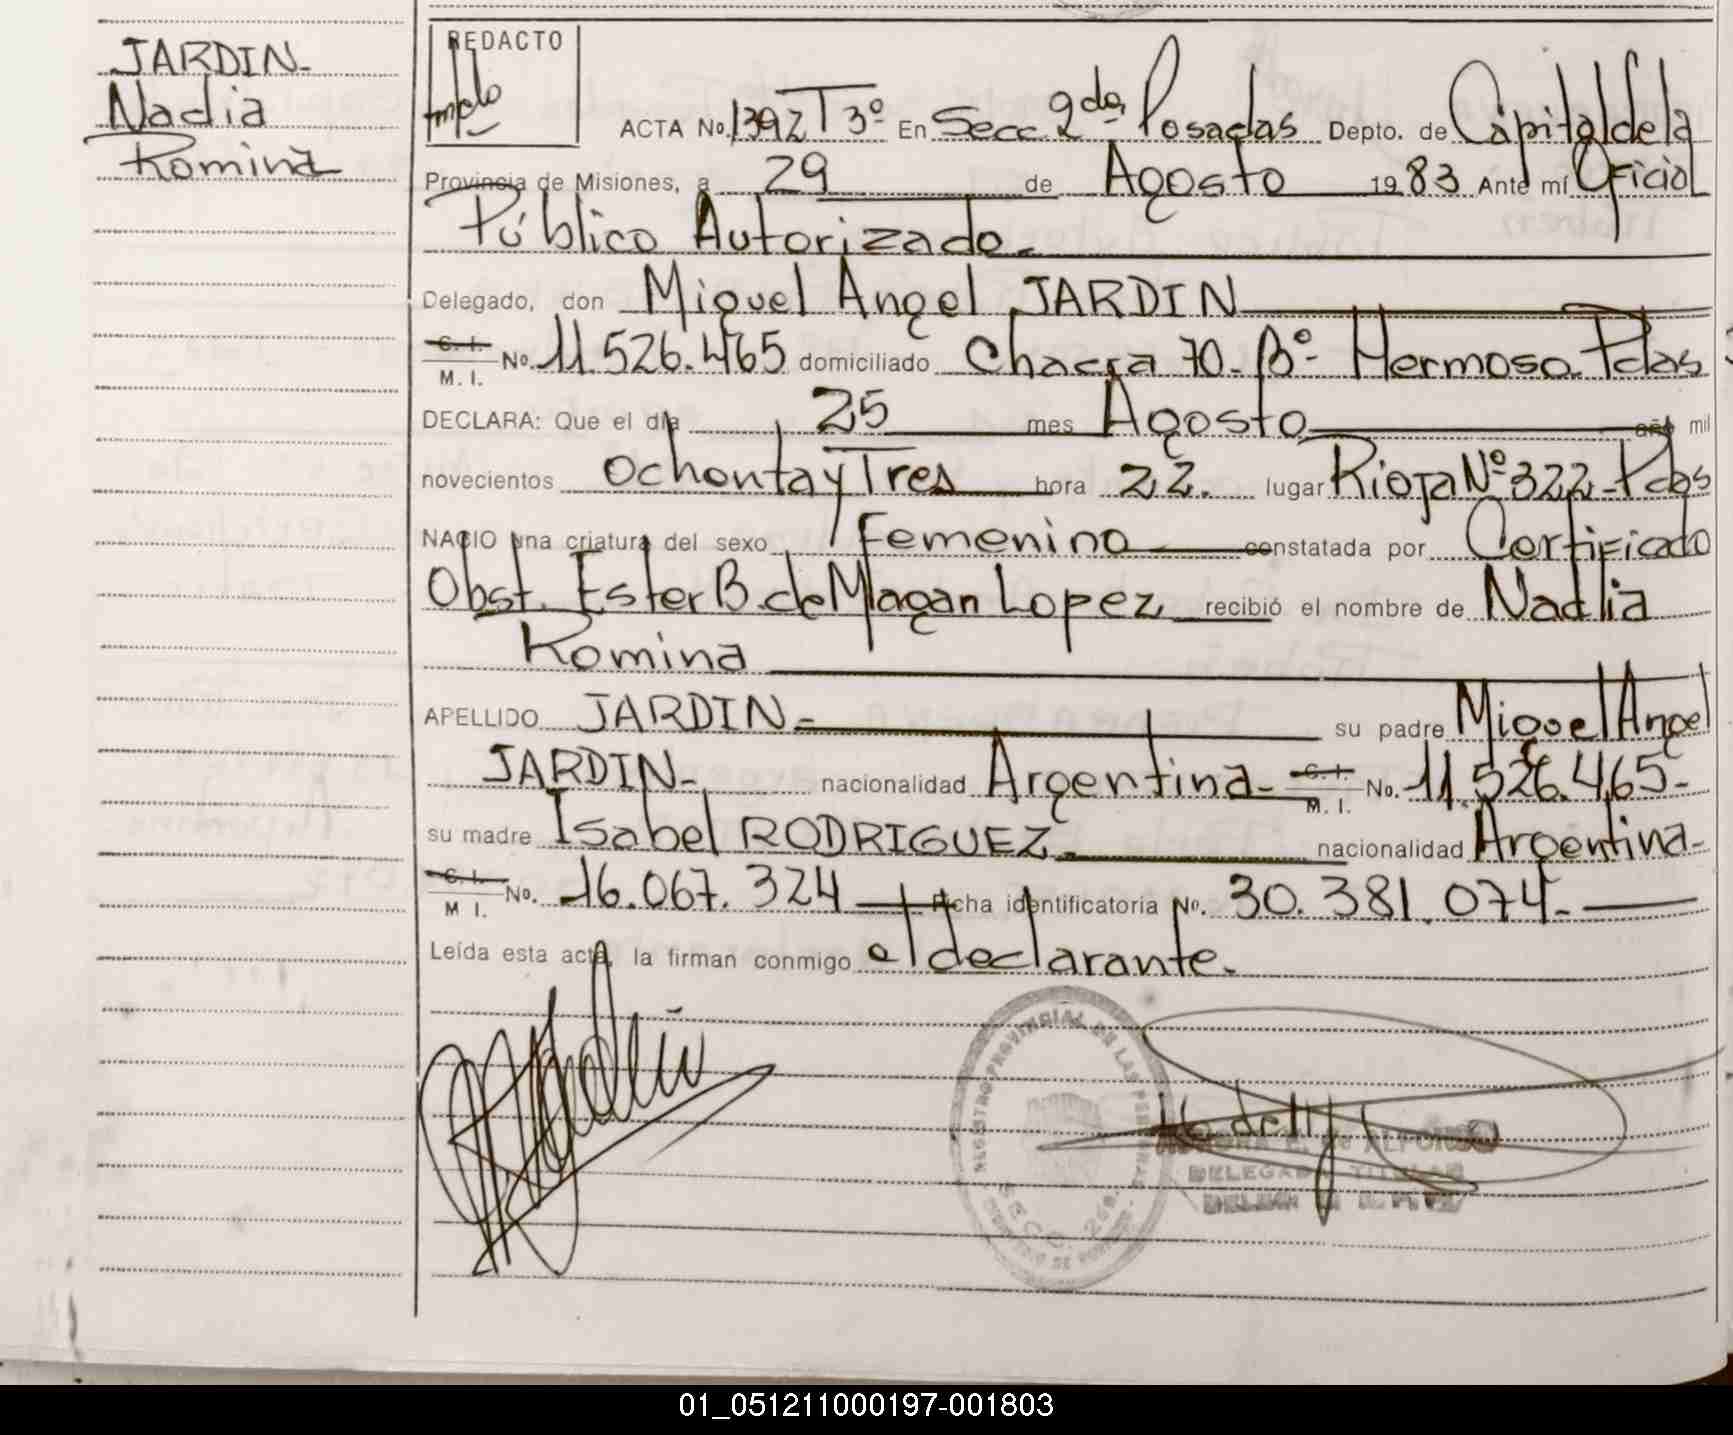 JARDIN-
Nadia
Romina
REDACTO
ACTA No. 1392 T 3º En Secc 2da Posadas Depto. de Capital de la
Provincia de Misiones, a 29 de Agosto 1983 Ante mí Oficial
Público Autorizado.
Delegado, don Miguel Angel JARDIN
C. I.
M. I. No. 11.526.465 domiciliado Chacra 70- Bº- Hermoso Pdas
DECLARA: Que el día 25 mes Agosto año mil
novecientos Ochenta y Tres hora 22. lugar Rioja Nº 322- Pdas
NACIO una criatura del sexo Femenino constatada por Certificado
Obst. Ester B. de Magan Lopez recibió el nombre de Nadia
Romina
APELLIDO JARDIN- su padre Miguel Angel
JARDIN- nacionalidad Argentina- C. I.
M. I. No. 11.526.465-
su madre Isabel RODRIGUEZ- nacionalidad Argentina-
C. I.
M I. No. 16.067.324 Ficha identificatoria No. 30.381.074-
Leída esta acta, la firman conmigo el declarante.
REGISTRO PROVINCIAL DE LAS PERSONAS
SECC. 2da.
de ALFONSO
DELEGADA TITULAR
01_051211000197-001803